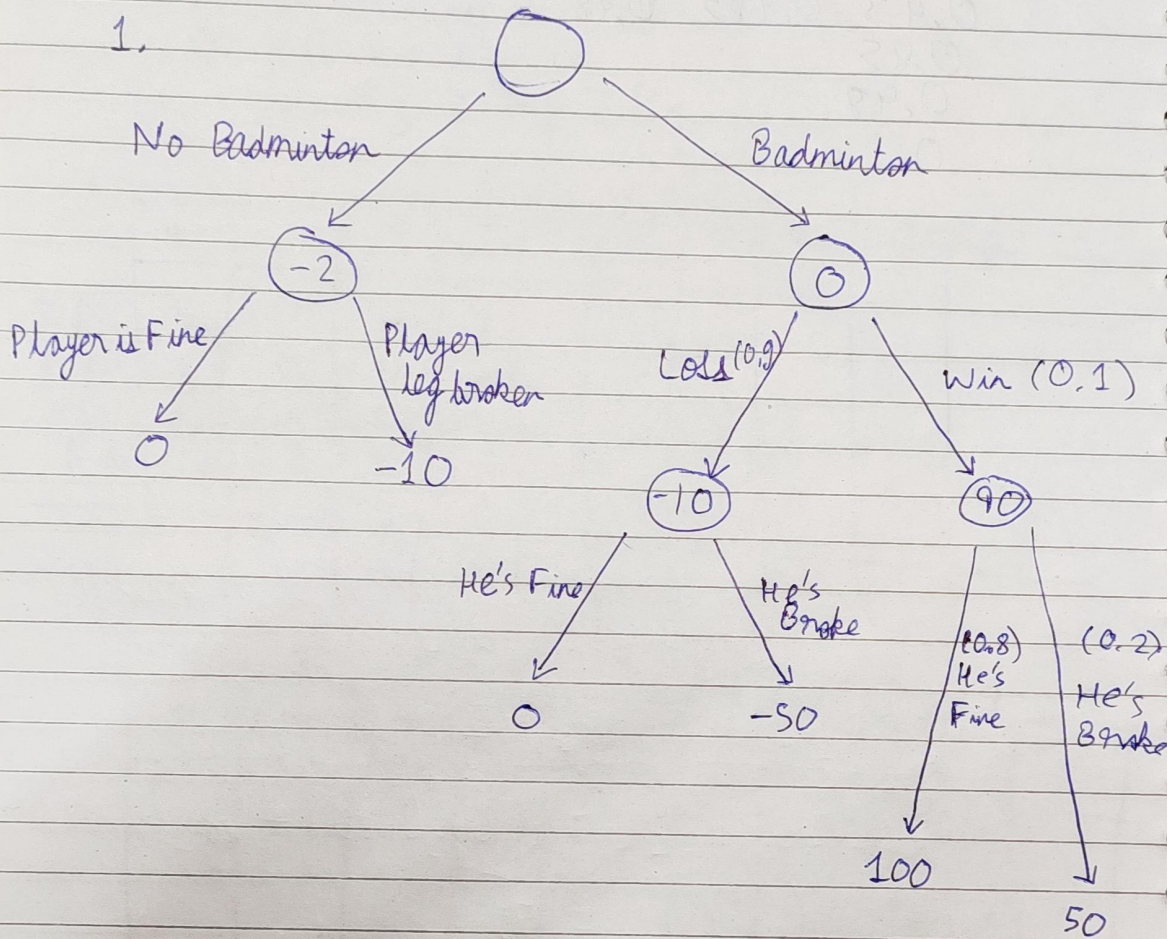 1.
No Badminton
Badminton
-2
0
Player is Fine
Player
leg broken
Loss (0.9)
Win (0.1)
0
-10
-10
90
He's Fine
He's
Broke
(0.8)
He's
Fine
(0.2)
He's
Broke
0
-50
100
50